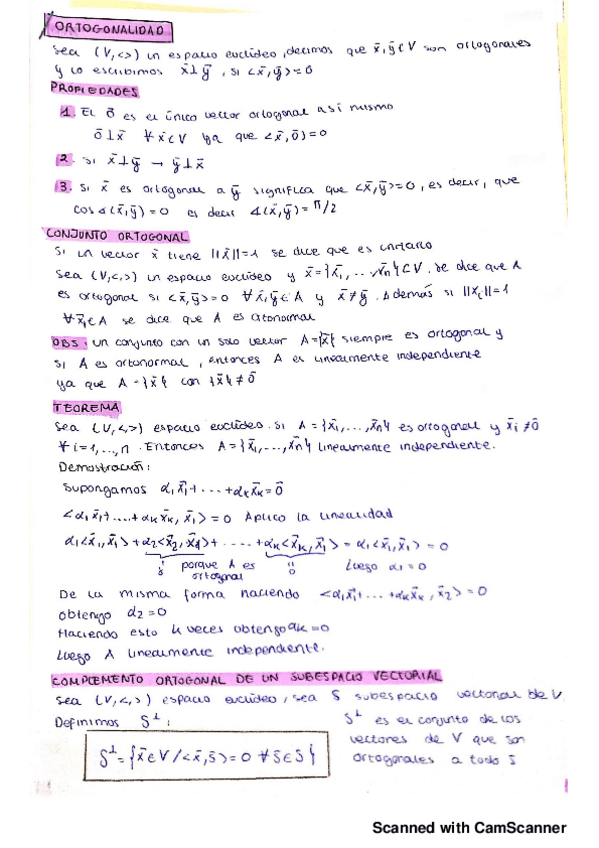 ORTOGONALIDAD
Sea (V,<>) un espacio euclídeo, decimos que x̄,ȳ∈V son ortogonales
y lo escribimos x̄⊥ȳ, si <x̄,ȳ>=0
PROPIEDADES
1. El ō es el único vector ortogonal a sí mismo
ō⊥x̄ ∀x̄∈V ya que <x̄,ō>=0
2. Si x̄⊥ȳ → ȳ⊥x̄
3. Si x̄ es ortogonal a ȳ significa que <x̄,ȳ>=0, es decir, que
cos∡(x̄,ȳ)=0 es decir ∡(x̄,ȳ)=π/2
CONJUNTO ORTOGONAL
Si un vector x̄ tiene ||x̄||=1 se dice que es unitario
Sea (V,<,>) un espacio euclídeo y x̄={x̄₁,...,x̄n}⊂V. Se dice que A
es ortogonal si <x̄,ȳ>=0 ∀x̄,ȳ∈A y x̄≠ȳ. Además si ||xᵢ||=1
∀x̄ᵢ∈A se dice que A es ortonormal
OBS: Un conjunto con un solo vector A={x̄} siempre es ortogonal y
si A es ortonormal, entonces A es linealmente independiente
ya que A={x̄} con {x̄}≠ō
TEOREMA
Sea (V,<,>) espacio euclídeo. Si A={x̄₁,...,x̄n} es ortogonal y x̄ᵢ≠ō
∀i=1,...,n. Entonces A={x̄₁,...,x̄n} linealmente independiente.
Demostración:
Supongamos α₁x̄₁+...+αₖx̄ₖ=ō
<α₁x̄₁+...+αₖx̄ₖ, x̄₁>=0 Aplico la linealidad
α₁<x̄₁,x̄₁>+α₂<x̄₂,x̄₁>+.....+αₖ<x̄ₖ,x̄₁>=α₁<x̄₁,x̄₁>=0
porque A es ortogonal Luego α₁=0
De la misma forma haciendo <α₁x̄₁+...+αₖx̄ₖ, x̄₂>=0
obtengo α₂=0
Haciendo esto k veces obtengo αₖ=0
Luego A linealmente independiente.
COMPLEMENTO ORTOGONAL DE UN SUBESPACIO VECTORIAL
Sea (V,<,>) espacio euclídeo, sea S subespacio vectorial de V
Definimos S⊥:
S⊥={x̄∈V/<x̄,s̄>=0 ∀s̄∈S}
S⊥ es el conjunto de los
vectores de V que son
ortogonales a todo S
Scanned with CamScanner